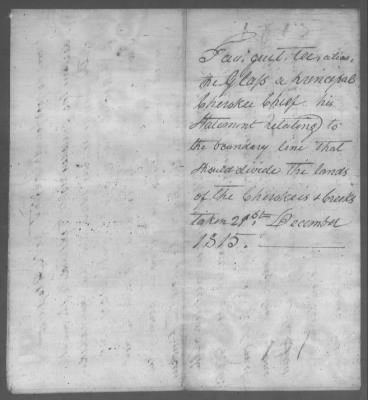 the Glass a principal
Cherokee Chief his
Statement relating to
the boundary line that
should divide the lands
of the Cherokees & Creeks
taken 21st December
1815.